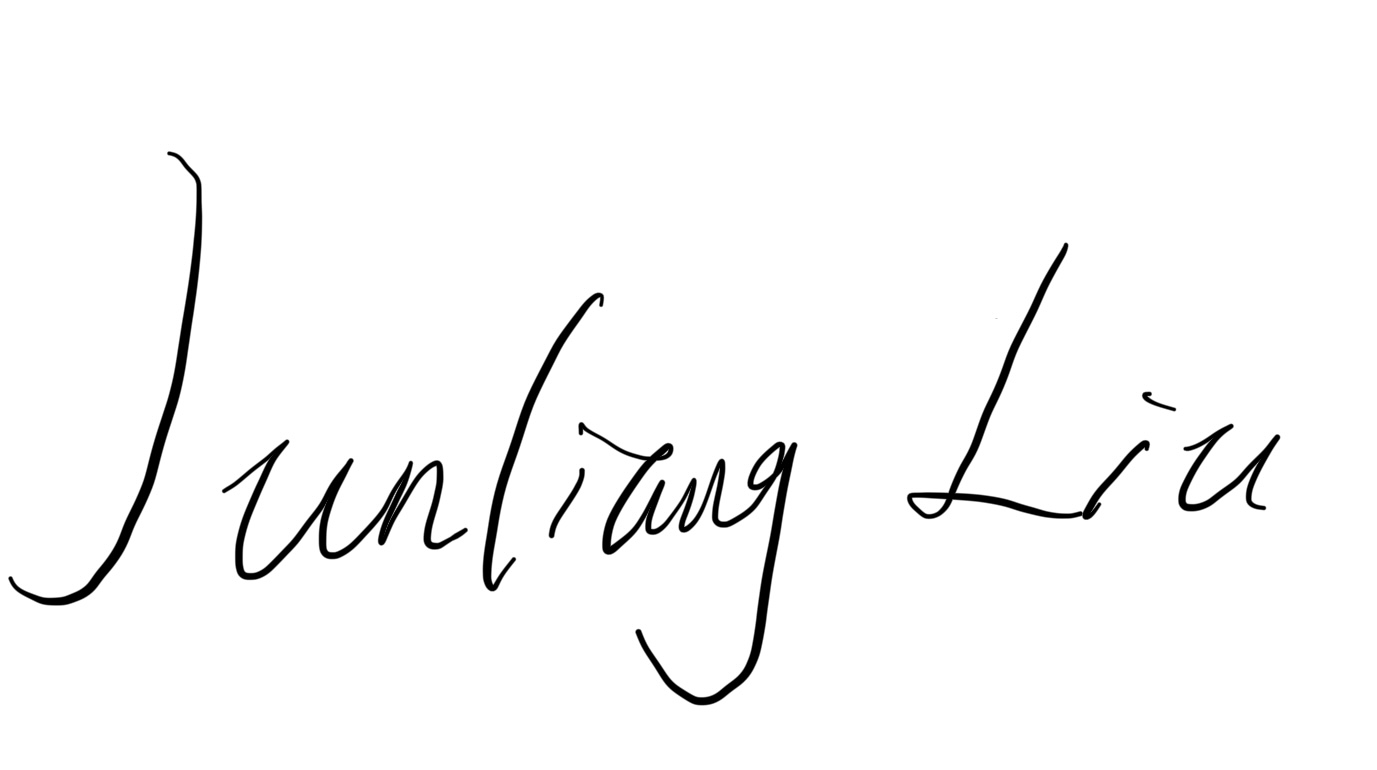 Junliang Liu